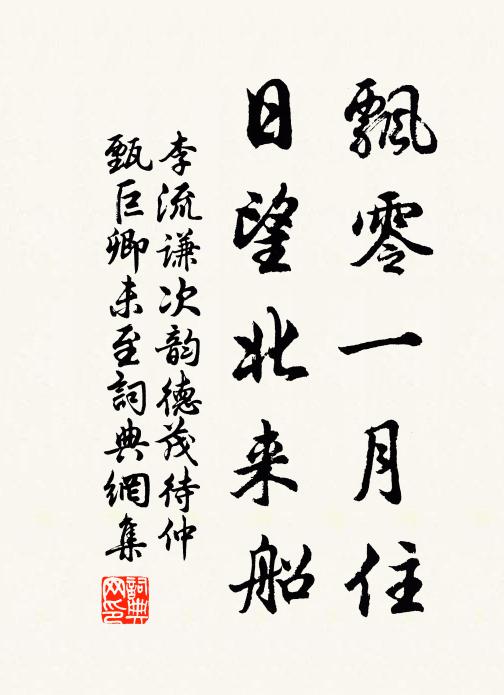 飄零一月住
日望北来船
李流谦次韵德茂待仲
甄巨卿未至詞典網集
詞典网印